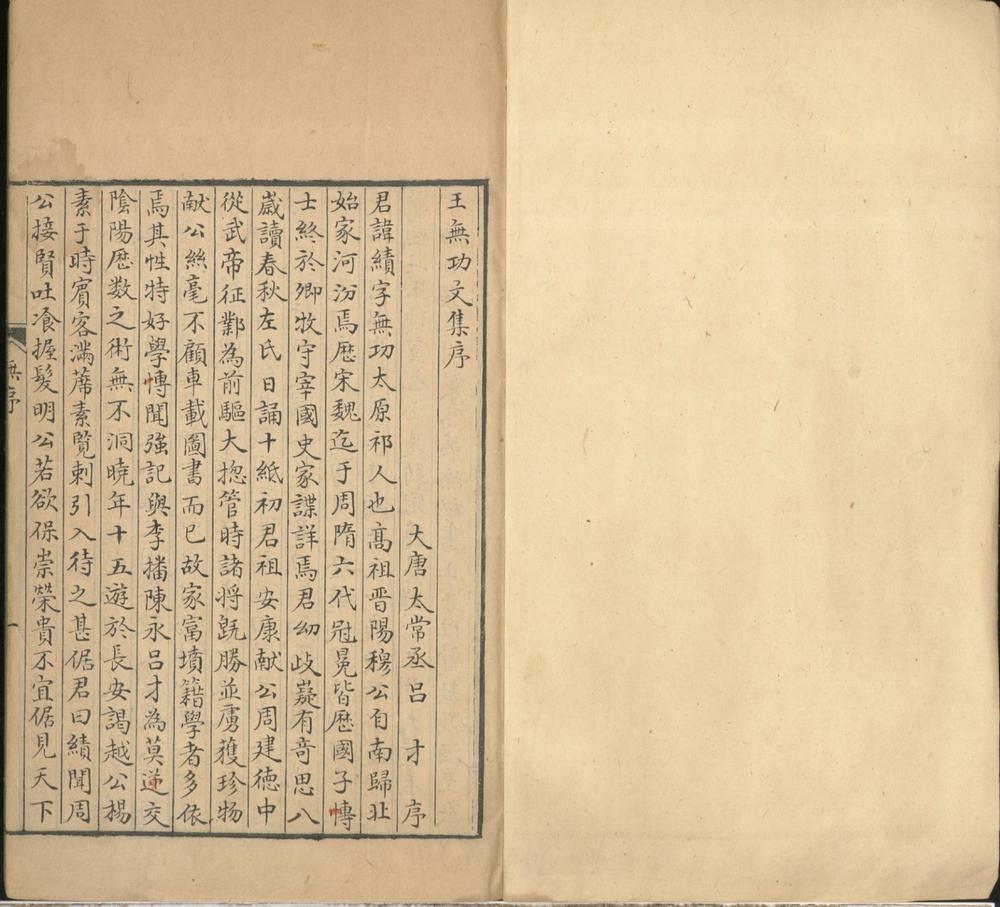 王無功文集序
大唐太常丞吕才序
君諱績字無功太原祁人也髙祖晋陽穆公自南歸北
始家河汾焉歴宋魏迄于周隋六代冠冕皆歴國子博
士終於卿牧守宰國史家諜詳焉君幼岐嶷有奇思八
歲讀春秋左氏日誦十紙初君祖安康献公周建德中
從武帝征鄴為前驅大揔管時諸将旣勝並虜獲珍物
献公絲毫不顧車載圖書而已故家富墳籍學者多依
焉其性特好學博聞強記與李播陳永吕才為莫逆交
陰陽歴数之術無不洞曉年十五遊於長安謁越公楊
素于時賓客滿蓆素覧刺引入待之甚倨君曰績聞周
公接賢吐飡握髮明公若欲保崇榮貴不宜倨見天下
無序
一